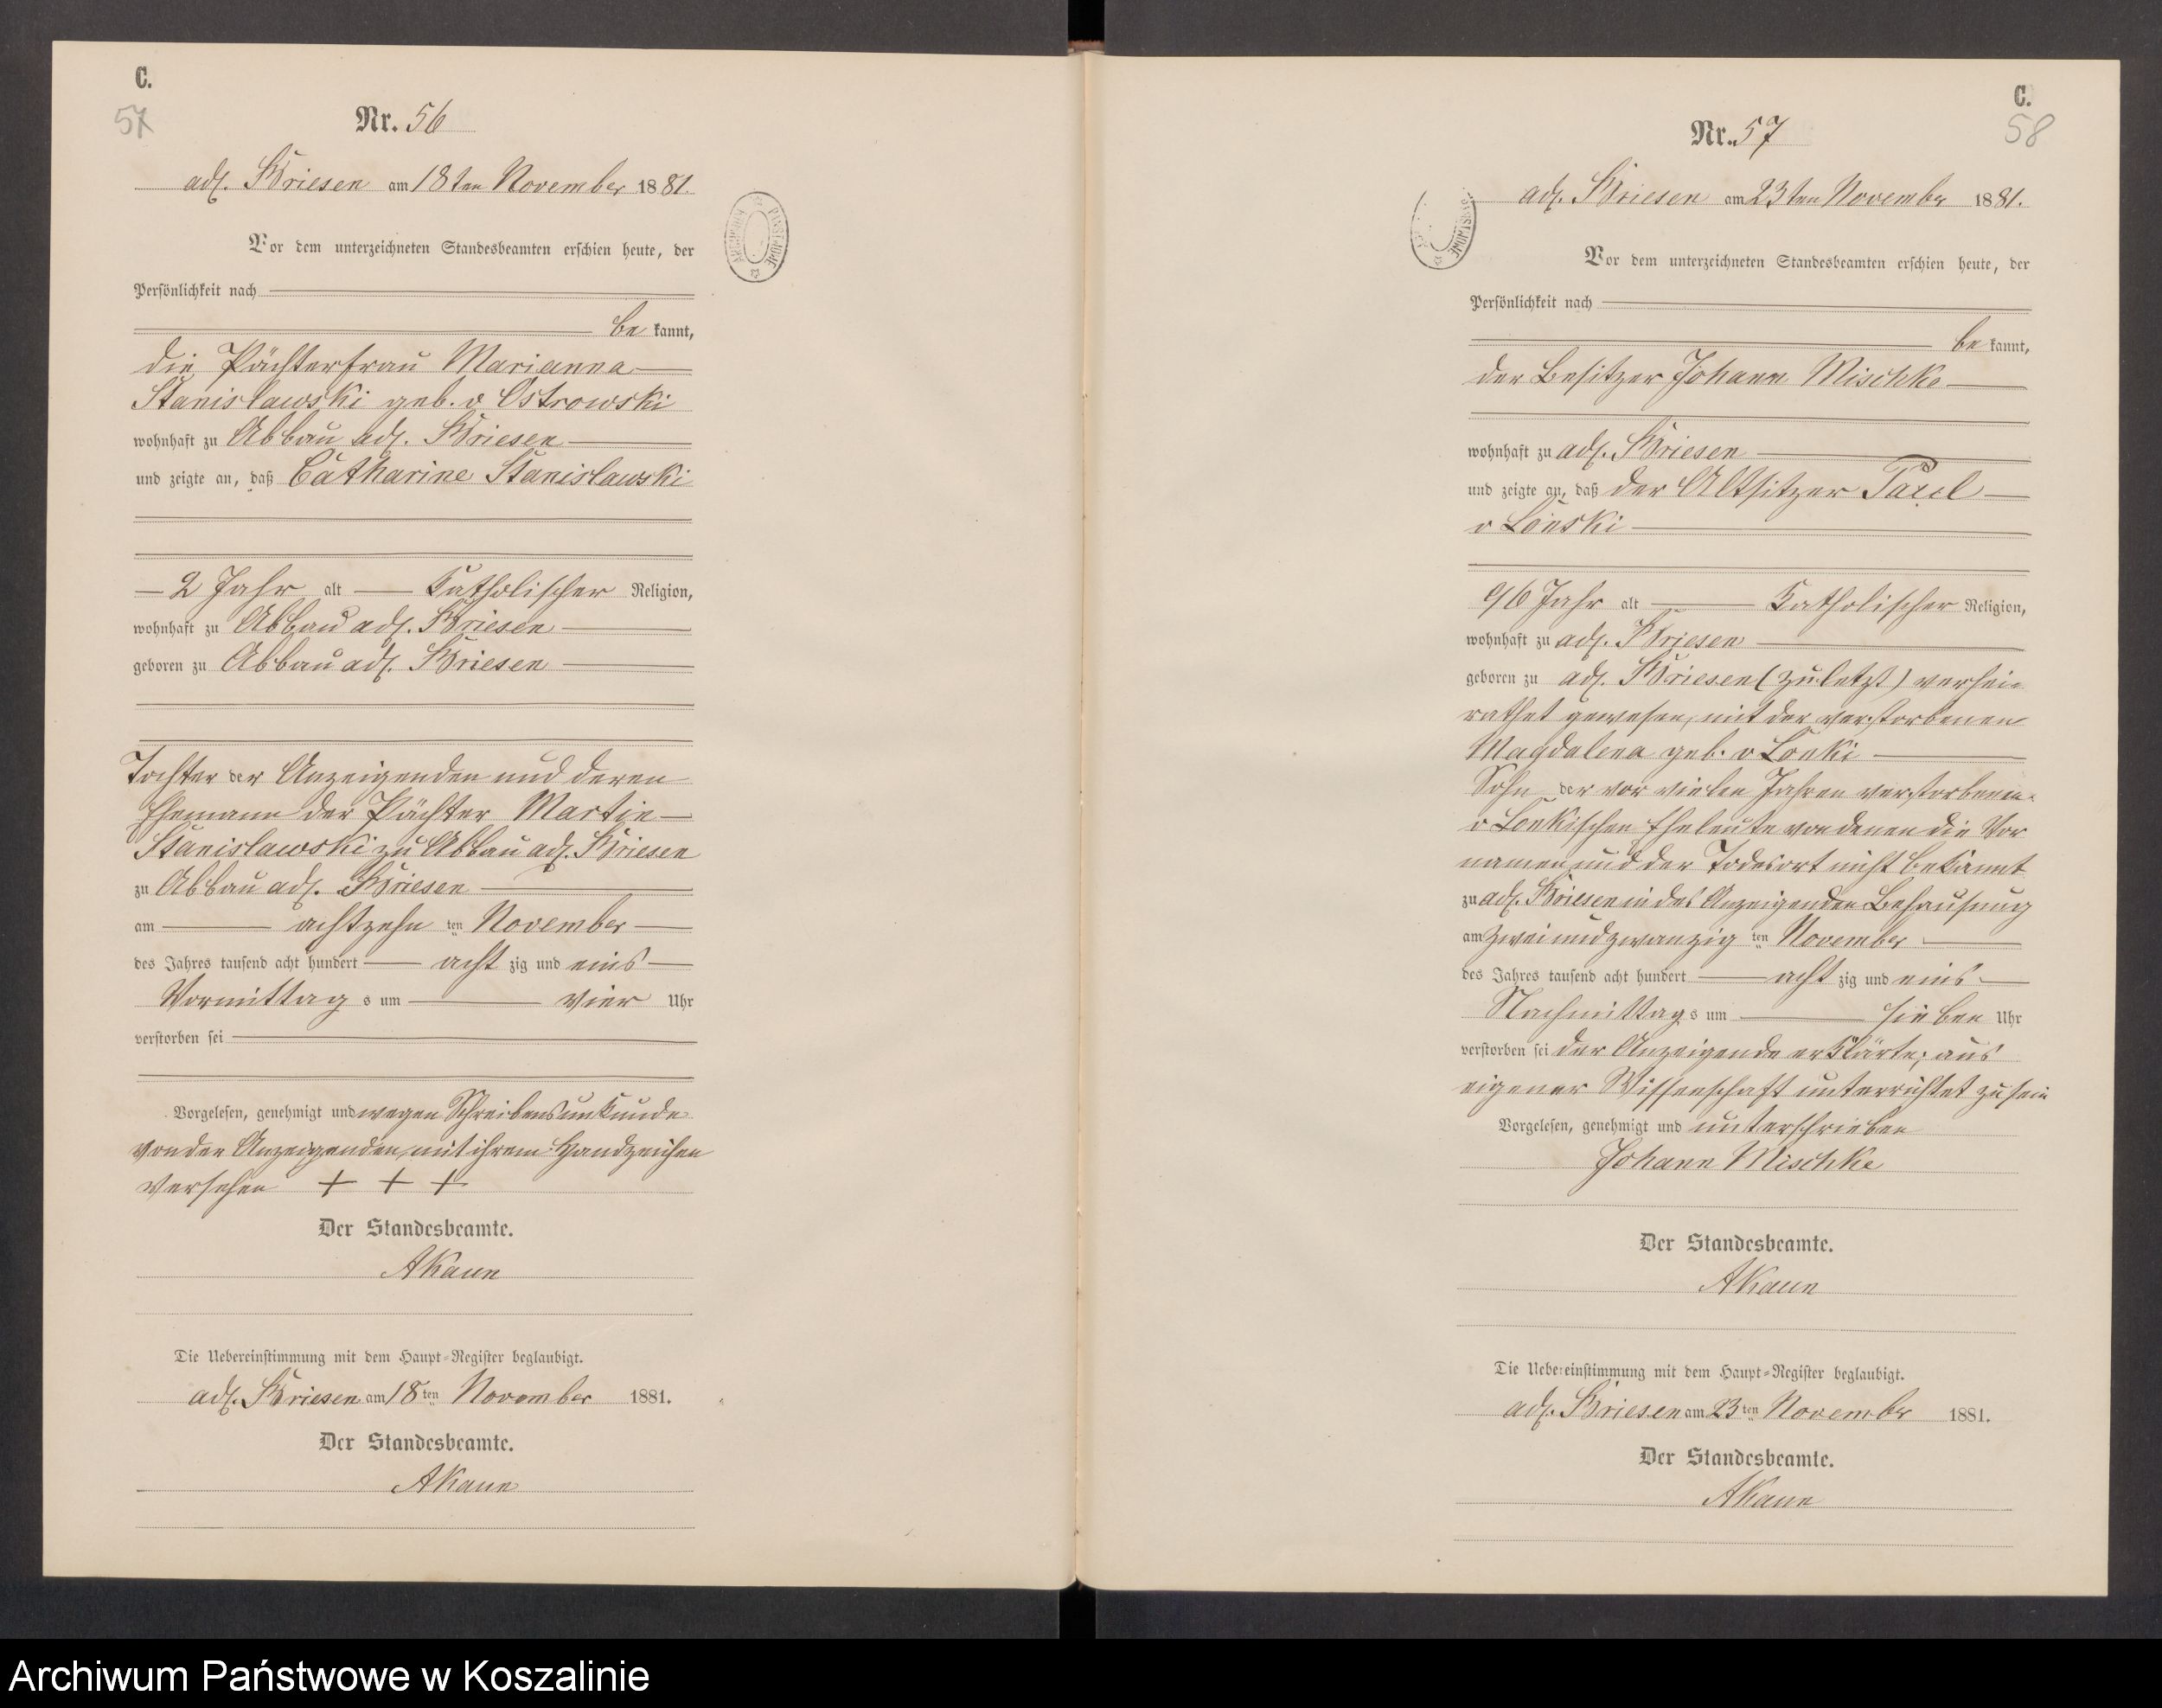 C.
57
Nr. 56
adl. Briesen am 18ten November 1881.
Vor dem unterzeichneten Standesbeamten erschien heute, der
Persönlichkeit nach
be kannt,
die Pächterfrau Marianna
Stanislawski geb. v Ostrowski
wohnhaft zu Abbau adl. Briesen
und zeigte an, daß Catharine Stanislawski
2 Jahr alt Katholischer Religion,
wohnhaft zu Abbau adl. Briesen
geboren zu Abbau adl. Briesen
Tochter der Anzeigenden und deren
Ehemann der Pächter Martin
Stanislawski zu Abbau adl. Briesen
zu Abbau adl. Briesen
am achtzehn ten November
des Jahres tausend acht hundert acht zig und eins
Vormittag s um vier Uhr
verstorben sei
Vorgelesen, genehmigt und wegen Schreibensunkunde
von der Anzeigenden mit ihrem Handzeichen
versehen + + +
Der Standesbeamte.
AKaun
Die Uebereinstimmung mit dem Haupt-Register beglaubigt.
adl. Briesen am 18ten November 1881.
Der Standesbeamte.
AKaun
C.
58
Nr. 57
adl. Briesen am 23ten November 1881.
Vor dem unterzeichneten Standesbeamten erschien heute, der
Persönlichkeit nach
be kannt,
der Besitzer Johann Mischke
wohnhaft zu adl. Briesen
und zeigte an, daß der Altsitzer Paul
v
96 Jahr alt Katholischer Religion,
wohnhaft zu adl. Briesen
geboren zu adl. Briesen (zuletzt) verhei-
rathet gewesen, mit der verstorbenen
Magdalena geb. v Lonki
Sohn der vor vielen Jahren verstorbenen
v Lonkischen Eheleute von denen die Vor
namen und der Todesort nicht bekannt
zu adl. Briesen in des Anzeigenden Behausung
am zweiundzwanzig ten November
des Jahres tausend acht hundert acht zig und eins
Nachmittag s um sieben Uhr
verstorben sei der Anzeigende erklärte, aus
eigener Wissenschaft unterrichtet zu sein
Vorgelesen, genehmigt und unterschrieben
Johann Mischke
Der Standesbeamte.
AKaun
Die Uebereinstimmung mit dem Haupt-Register beglaubigt.
adl. Briesen am 23ten November 1881.
Der Standesbeamte.
AKaun
Archiwum Państwowe w Koszalinie